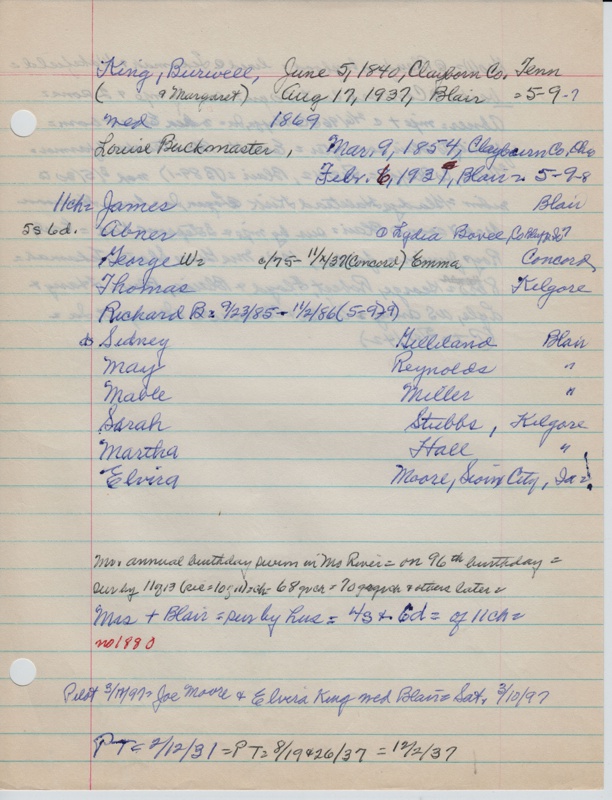 King, Burwell, June 5, 1840, Clayborn Co. Tenn
( & Margaret) Aug 17, 1937, Blair = 5-9-7
wed 1869
Louise Buckmaster, Mar. 9, 1854, Claybourn Co,
Febr. 6, 1931, Blair = 5-9-8
11ch= James Blair
5s 6d.= Abner Lydia Bovee,
George W= c/75- 11/7/37 (Concord) Emma Concord
Thomas Kilgore
Richard B= 9/23/85 - 11/2/86 (5-9-9)
ds Sidney Gilleland Blair
May Reynolds "
Mable Miller "
Sarah Stubbs, Kilgore
Martha Hall "
Elvira Moore, Sioux City, Ia=
annual birthday swim in Mo River = on 96th birthday =
sur by 11 of 13 68 gch = 70 & others later=
Mrs + Blair = sur by hus = 4s & 6d = of 11ch=
no 1880
Pilot 3/17/97= Joe Moore & Elvira King wed Blair = Sat. 3/10/97
PT= 2/12/31 = PT= 8/19&26/37 = 12/2/37